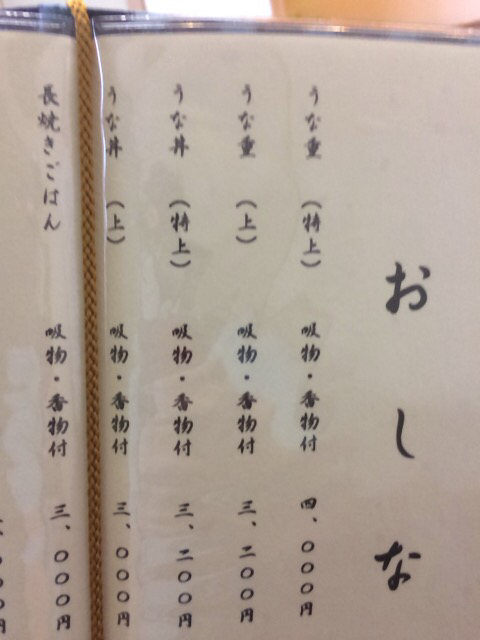 おしな
うな重 (特上) 吸物・香物付 四、〇〇〇円
うな重 (上) 吸物・香物付 三、二〇〇円
うな丼 (特上) 吸物・香物付 三、二〇〇円
うな丼 (上) 吸物・香物付 三、〇〇〇円
長焼きごはん 吸物・香物付 三、〇〇〇円